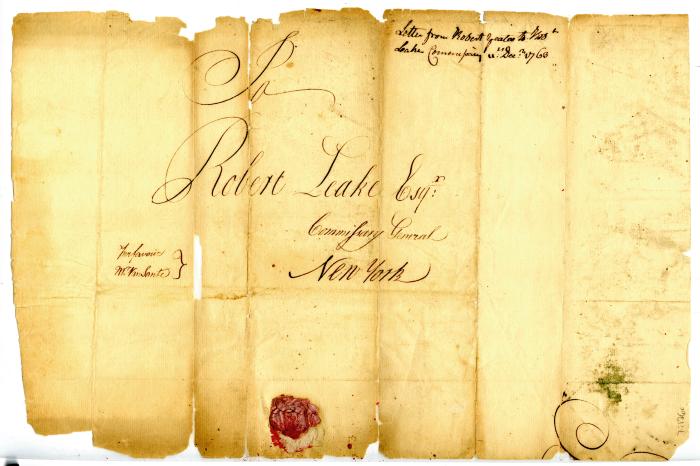 Letter from Robert to Rob.t
Leake Commissary 11.th Dec.r 1763
To
Robert Leake Esq.r
Commissary General
New York
Per favour
Mr. VnSante }